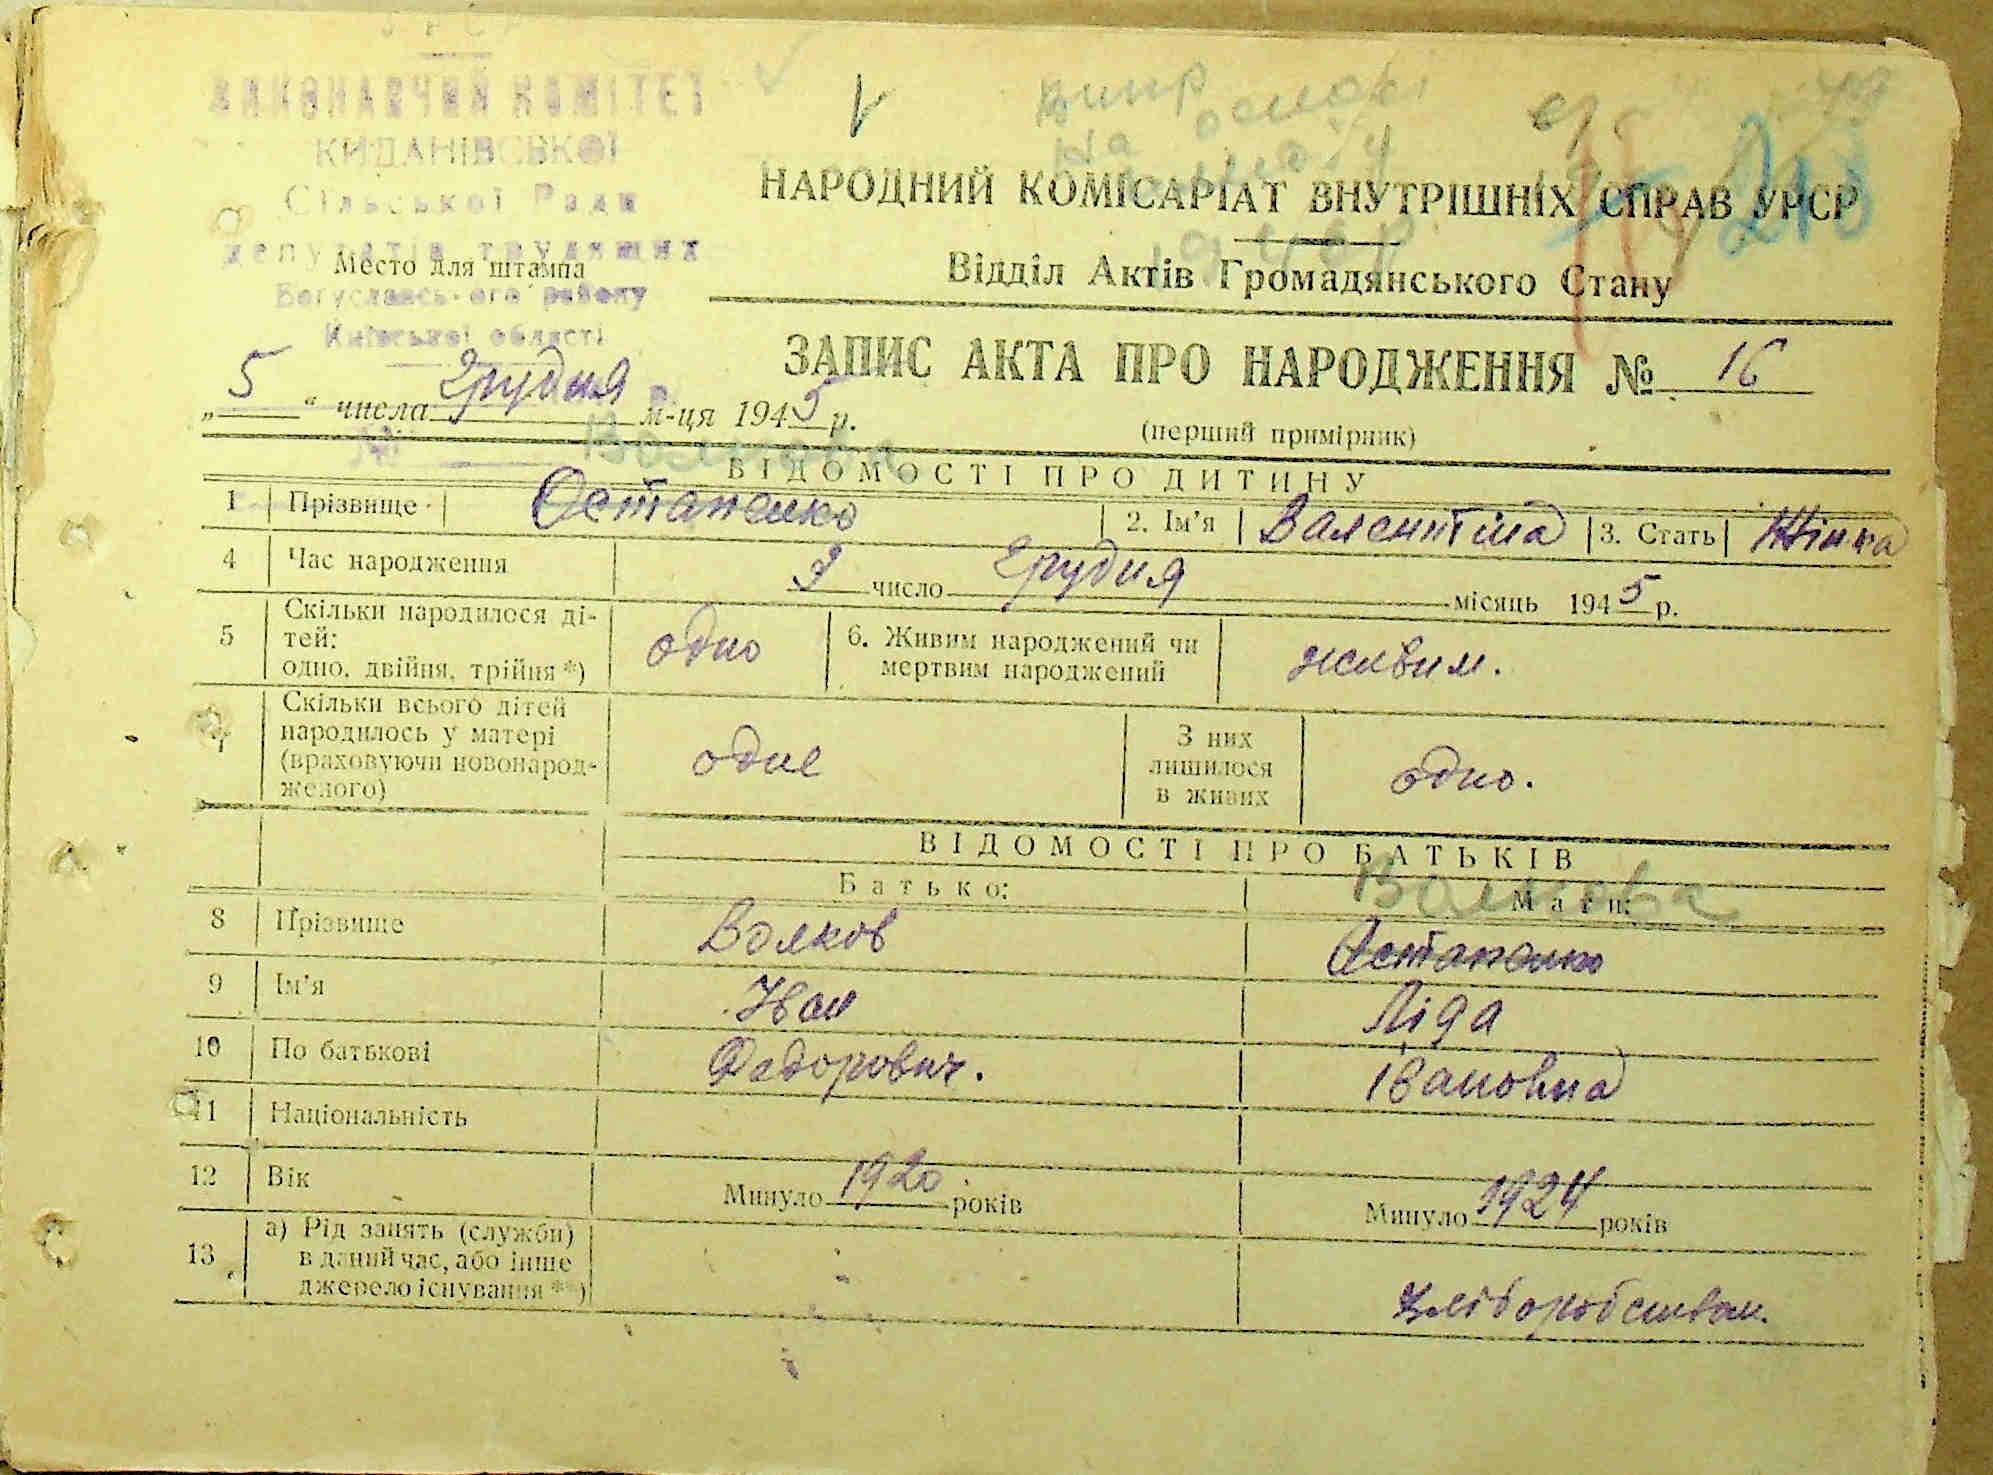 УРСР
ВИКОНАВЧИЙ КОМІТЕТ
КИДАНІВСЬКОЇ
Сільської Ради
депутатів трудящих
Место для штампа
Богуславсь-ого району
Київської області
НАРОДНИЙ КОМІСАРІАТ ВНУТРІШНІХ СПРАВ УРСР
Відділ Актів Громадянського Стану
ЗАПИС АКТА ПРО НАРОДЖЕННЯ № 16
„ 5 “ числа Грудня м-ця 1945 р.
(перший примірник)
№
Волкова
ВІДОМОСТІ ПРО ДИТИНУ
1 Прізвище Остапенко 2. Ім'я Валентіна 3. Стать Жінка
4 Час народження 3 число Грудня місяць 1945 р.
5 Скільки народилося ді-
тей:
одно, двійня, трійня *) одно 6. Живим народжений чи
мертвим народжений живим.
7 Скільки всього дітей
народилось у матері
(враховуючи новонарод-
желого) одне З них
лишилося
в живих одно.
ВІДОМОСТІ ПРО БАТЬКІВ
Батько: Мати:
Волкова
8 Прізвище Волков Остапенко
9 Ім'я Іван Ліда
10 По батькові Федорович. Івановна
11 Національність
12 Вік Минуло 1920 років Минуло 1924 років
13 а) Рід занять (служби)
в даний час, або інше
джерело існування **) Хліборобством.